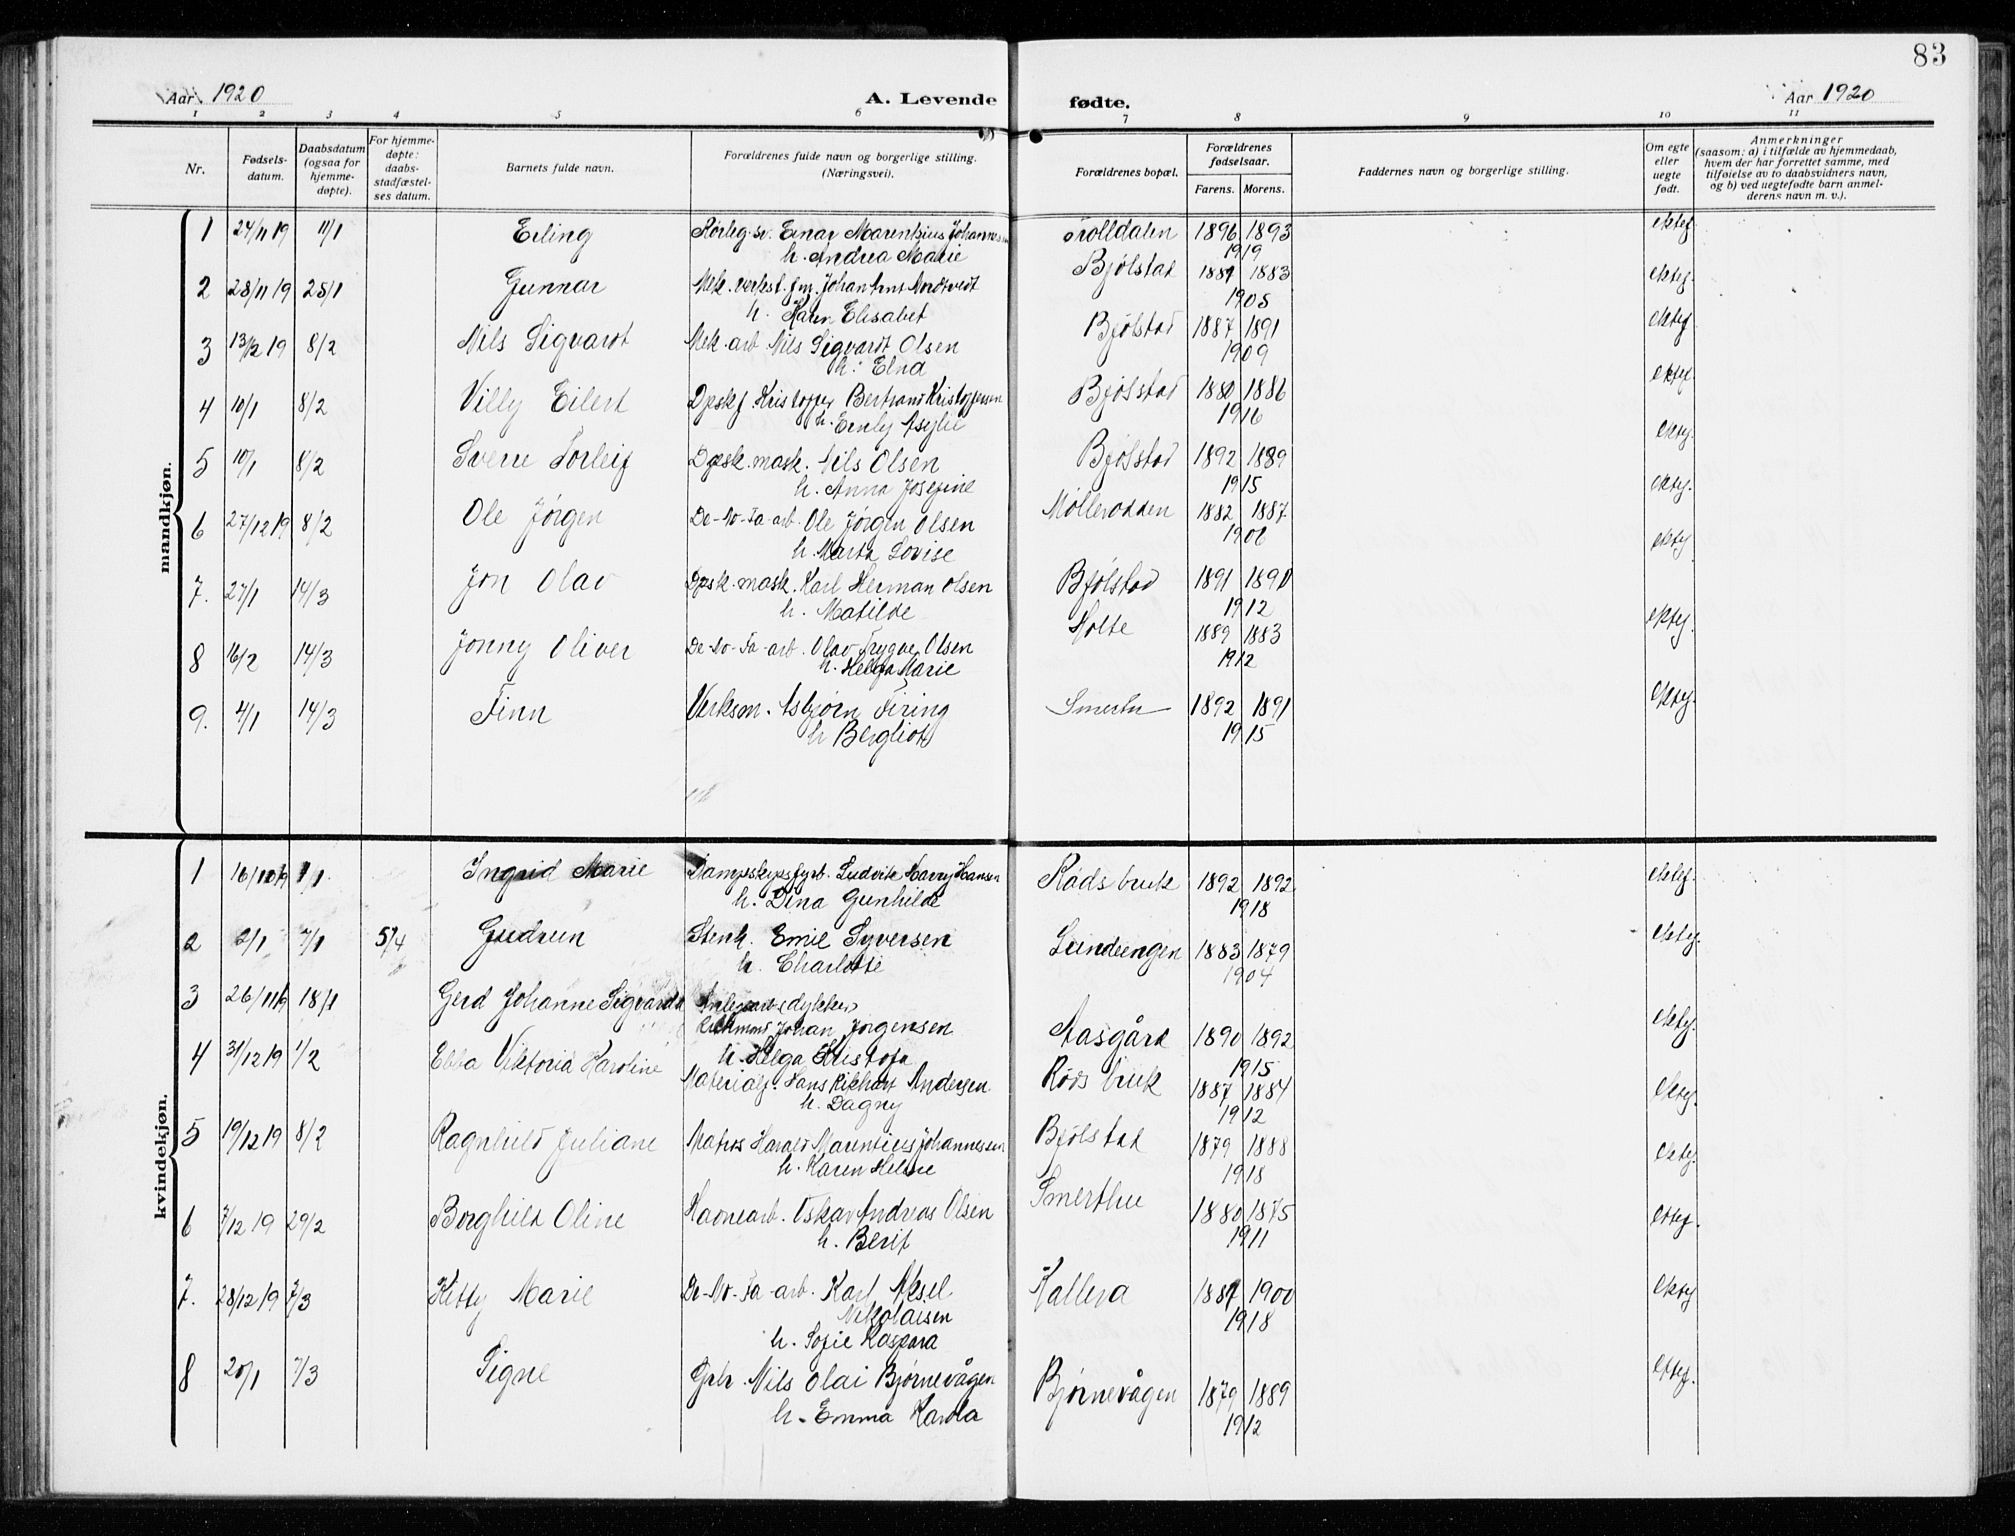 83
Aar 1920 A. Levende fødte. Aar 1920
1 2 3 4 5 6 7 8 9 10 11
Nr. Fødsels-datum. Daabsdatum (ogsaa for hjemme-døpte). For hjemme-døpte: daabs-stadfæstel-ses datum. Barnets fulde navn. Forældrenes fulde navn og borgerlige stilling. (Næringsvei). Forældrenes bopæl. Forældrenes fødselsaar. Farens. Morens. Faddernes navn og borgerlige stilling. Om egte eller uegte født. Anmerkninger (saasom: a) i tilfælde av hjemmedaab, hvem der har forrettet samme, med tilføielse av to daabsvidners navn, og b) ved uegtefødte barn anmel-derens navn m. v.).
mandkjøn.
1 24/11 19 11/1 Erling Rørleg.sv. Einar Marentsius Johannesen Trolldalen 1896 1893 ektef.
h. Andrea Marie 1919
2 28/11 19 25/1 Gunnar Mek. verkst. fm. Johan Arnt Nordtvedt Bjølstad 1883 ektef.
h. Karen Elisabet 1905
3 13/12 19 8/2 Nils Sigvardt Mek. arb Nils Sigvardt Olsen Bjølstad 1887 1891 ektef
h. Elna 1909
4 10/1 8/2 Villy Eilert Dpskf. Kristoffer Bertrand Kristoffersen Bjølstad 1880 1886 ektef.
h. Emly 1916
5 10/1 8/2 Sverre Torleif Dpsk. mask. Nils Olsen Bjølstad 1892 1889 ektef.
h. Anna Josefine 1915
6 27/12 19 8/2 Ole Jörgen De-No-Fa-arb. Ole Jörgen Olsen Mollerodden 1882 1887 ektef.
h. Marta Lovise
7. 27/1 14/3 Jon Olav Dpsk. mask. Karl Herman Olsen Bjølstad 1891 1890 ektef
h. Matilde 1912
8 16/2 14/3 Jonny Oliver De-No-Fa-arb. Olav Trygve Olsen Holte 1889 1883 ektef.
h. Helga Marie 1912
9. 4/1 14/3 Finn Verksm. Asbjørn Firing Smertu 1892 1891 ektef.
h Bergliot 1915
kvindekjøn.
1 16/12 19 1/1 Ingrid Marie Dampskipsfyrb. Ludvik Harry Hansen Røds bruk 1892 1892 ektef.
h. Dina Gunhilde 1918
2 2/1 7/1 5/4 Gudrun Stenh. Emil Syversen Lundeengen 1883 1879 ektef.
h. Charlotte 1904
3 26/11 19 18/1 Gerd Johanne Sigvarda (dykker)
Johan Jörgensen Aasgård 1890 1892 ektef.
h. Helga Kristofa 1915
4 31/12 19 1/2 Ebba Viktoria Karoline Materialf. Hans Rikhart Andersen Røds bruk 1887 1884 ektef.
h. Dagny 1912
5 19/12 19 8/2 Ragnhild Juliane Matros Harald Marentsius Johannessen Bjølstad 1879 1888 ektef.
h. Karen Helene 1918
6 7/12 19 29/2 Borghild Oline Havnearb. Oskar Andreas Olsen Smerthu 1880 1875 ektef.
h. Berit 1911
7. 28/12 19 7/3 Kitty Marie De-No-Fa-arb. Karl Aksel Hallera 1900 ektef
Nikolaisen 1918
h. Sofie Kaspara
8 20/1 7/3 Signe Gbr. Nils Olai Bjørnevågen Bjørnevågen 1879 1889 ektef.
h. Emma Karola 1912